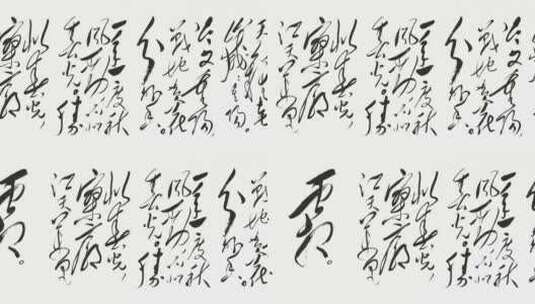 今又重阳，
战地黄花
分外香。
一年一度秋
风劲，不似
春光。胜
似春光，
寥廓
江天万里
岁重阳。
今又重阳，
战地黄花
分外香。
一年一度秋
风劲，不似
春光。胜
似春光，
寥廓
分外香。
一年一度秋
风劲，不似
春光。胜
似春光，
寥廓
江天万里
霜。
战地黄花
分外香。
一年一度秋
风劲，不似
春光。胜
似春光，
寥廓
江天万里
霜。